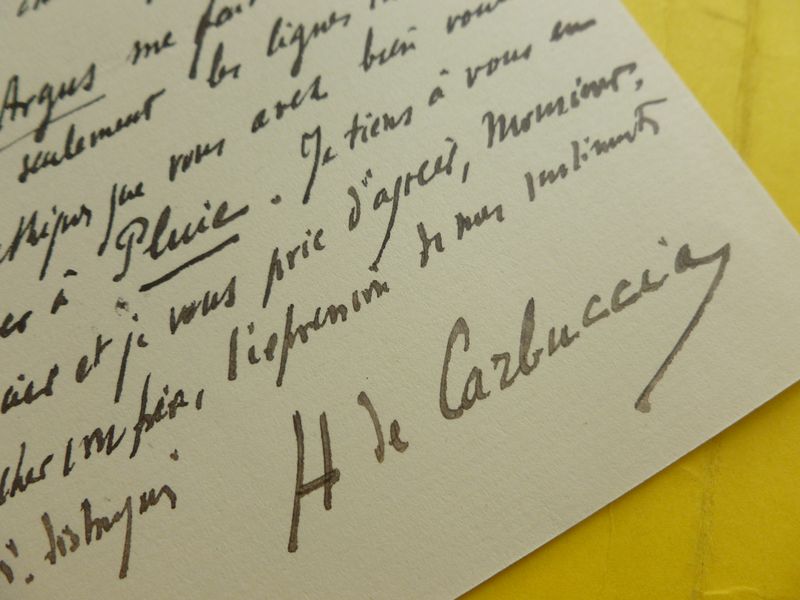 Argus me fait
seulement les lignes
que vous avez bien voulu
à Pluie. Je tiens à vous en
et je vous prie d'agréer, Monsieur,
cher confrère, l'expression de mes sentiments
distingués
H de Carbuccia